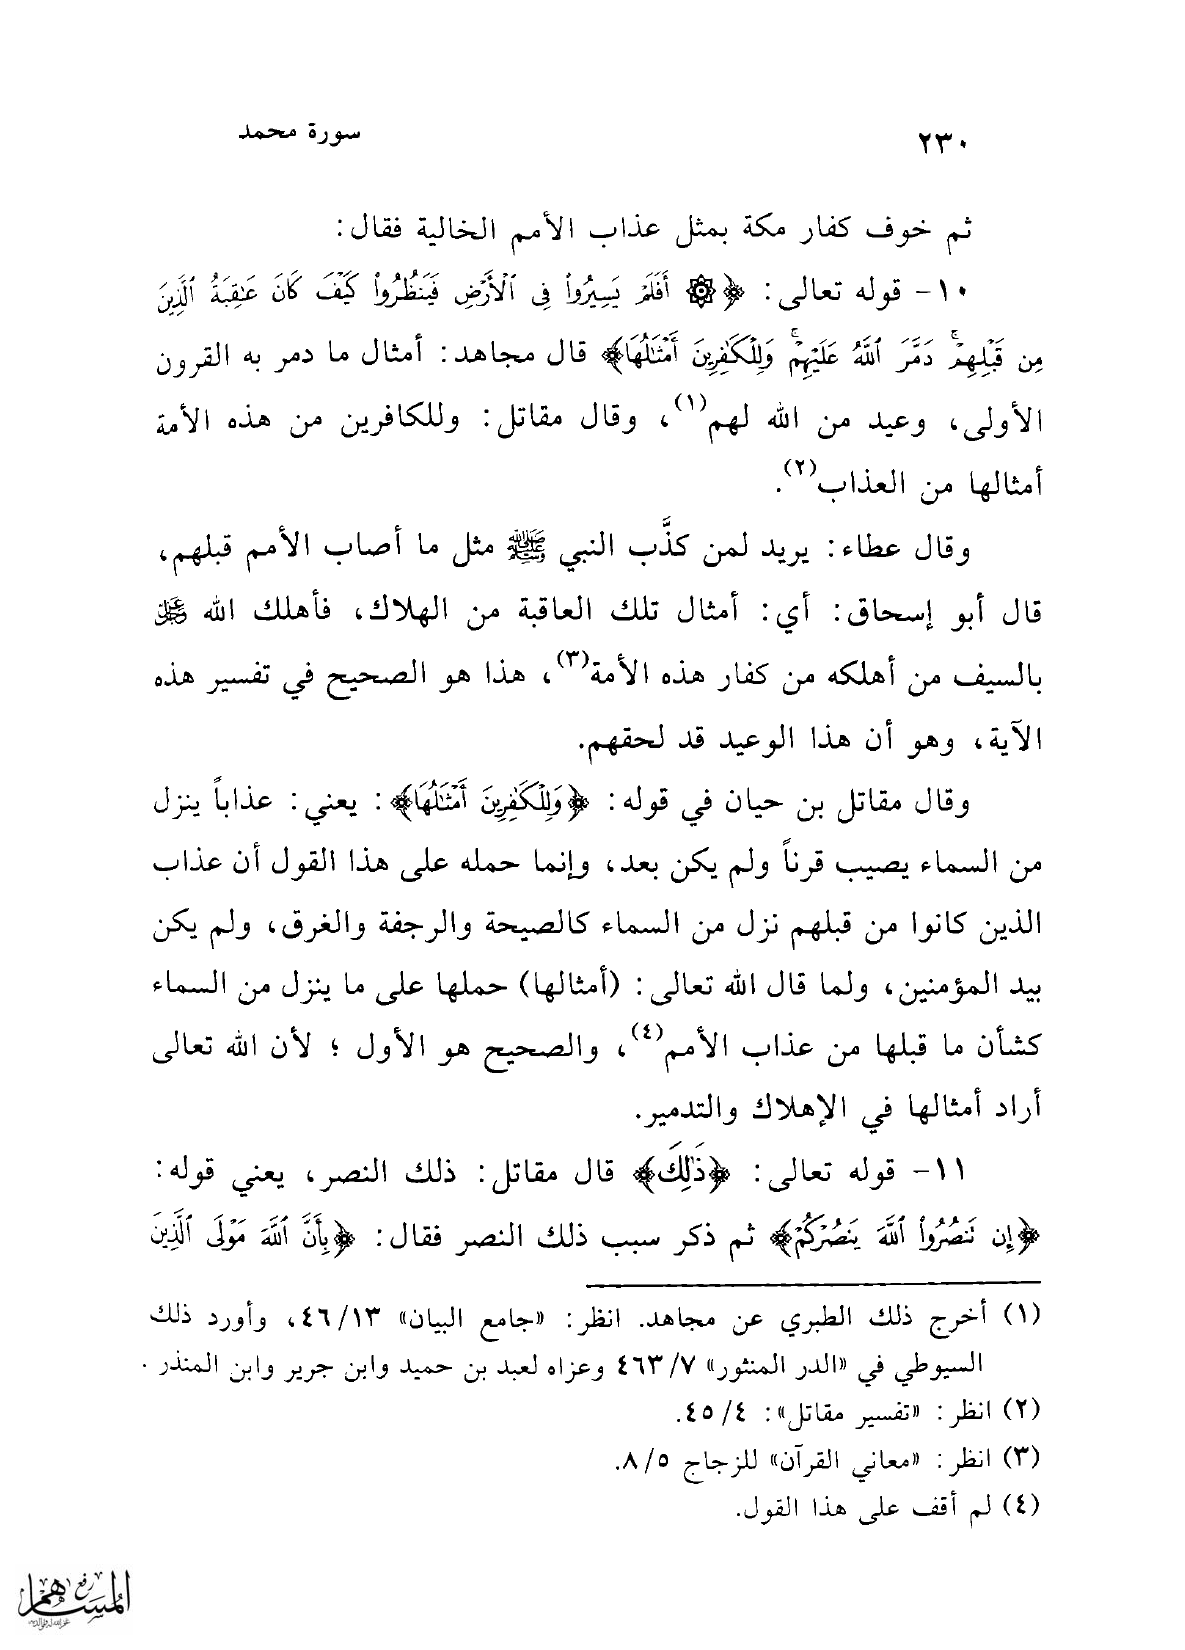 ٢٣٠ سورة محمد
ثم خوف كفار مكة بمثل عذاب الأمم الخالية فقال:
١٠- قوله تعالى: ﴿۞ أَفَلَمْ يَسِيرُوا۟ فِى ٱلْأَرْضِ فَيَنظُرُوا۟ كَيْفَ كَانَ عَـٰقِبَةُ ٱلَّذِينَ
مِن قَبْلِهِمْ ۚ دَمَّرَ ٱللَّهُ عَلَيْهِمْ ۖ وَلِلْكَـٰفِرِينَ أَمْثَـٰلُهَا﴾ قال مجاهد: أمثال ما دمر به القرون
الأولى، وعيد من الله لهم(١)، وقال مقاتل: وللكافرين من هذه الأمة
أمثالها من العذاب(٢).
وقال عطاء: يريد لمن كذَّب النبي ﷺ مثل ما أصاب الأمم قبلهم،
قال أبو إسحاق: أي: أمثال تلك العاقبة من الهلاك، فأهلك الله ﷻ
بالسيف من أهلكه من كفار هذه الأمة(٣)، هذا هو الصحيح في تفسير هذه
الآية، وهو أن هذا الوعيد قد لحقهم.
وقال مقاتل بن حيان في قوله: ﴿وَلِلْكَـٰفِرِينَ أَمْثَـٰلُهَا﴾: يعني: عذاباً ينزل
من السماء يصيب قرناً ولم يكن بعد، وإنما حمله على هذا القول أن عذاب
الذين كانوا من قبلهم نزل من السماء كالصيحة والرجفة والغرق، ولم يكن
بيد المؤمنين، ولما قال الله تعالى: (أمثالها) حملها على ما ينزل من السماء
كشأن ما قبلها من عذاب الأمم(٤)، والصحيح هو الأول ؛ لأن الله تعالى
أراد أمثالها في الإهلاك والتدمير.
١١- قوله تعالى: ﴿ذَٰلِكَ﴾ قال مقاتل: ذلك النصر، يعني قوله:
﴿إِن تَنصُرُوا۟ ٱللَّهَ يَنصُرْكُمْ﴾ ثم ذكر سبب ذلك النصر فقال: ﴿بِأَنَّ ٱللَّهَ مَوْلَى ٱلَّذِينَ
(١) أخرج ذلك الطبري عن مجاهد. انظر: «جامع البيان» ٤٦/١٣، وأورد ذلك
السيوطي في «الدر المنثور» ٤٦٣/٧ وعزاه لعبد بن حميد وابن جرير وابن المنذر .
(٢) انظر: «تفسير مقاتل»: ٤٥/٤.
(٣) انظر: «معاني القرآن» للزجاج ٨/٥.
(٤) لم أقف على هذا القول.